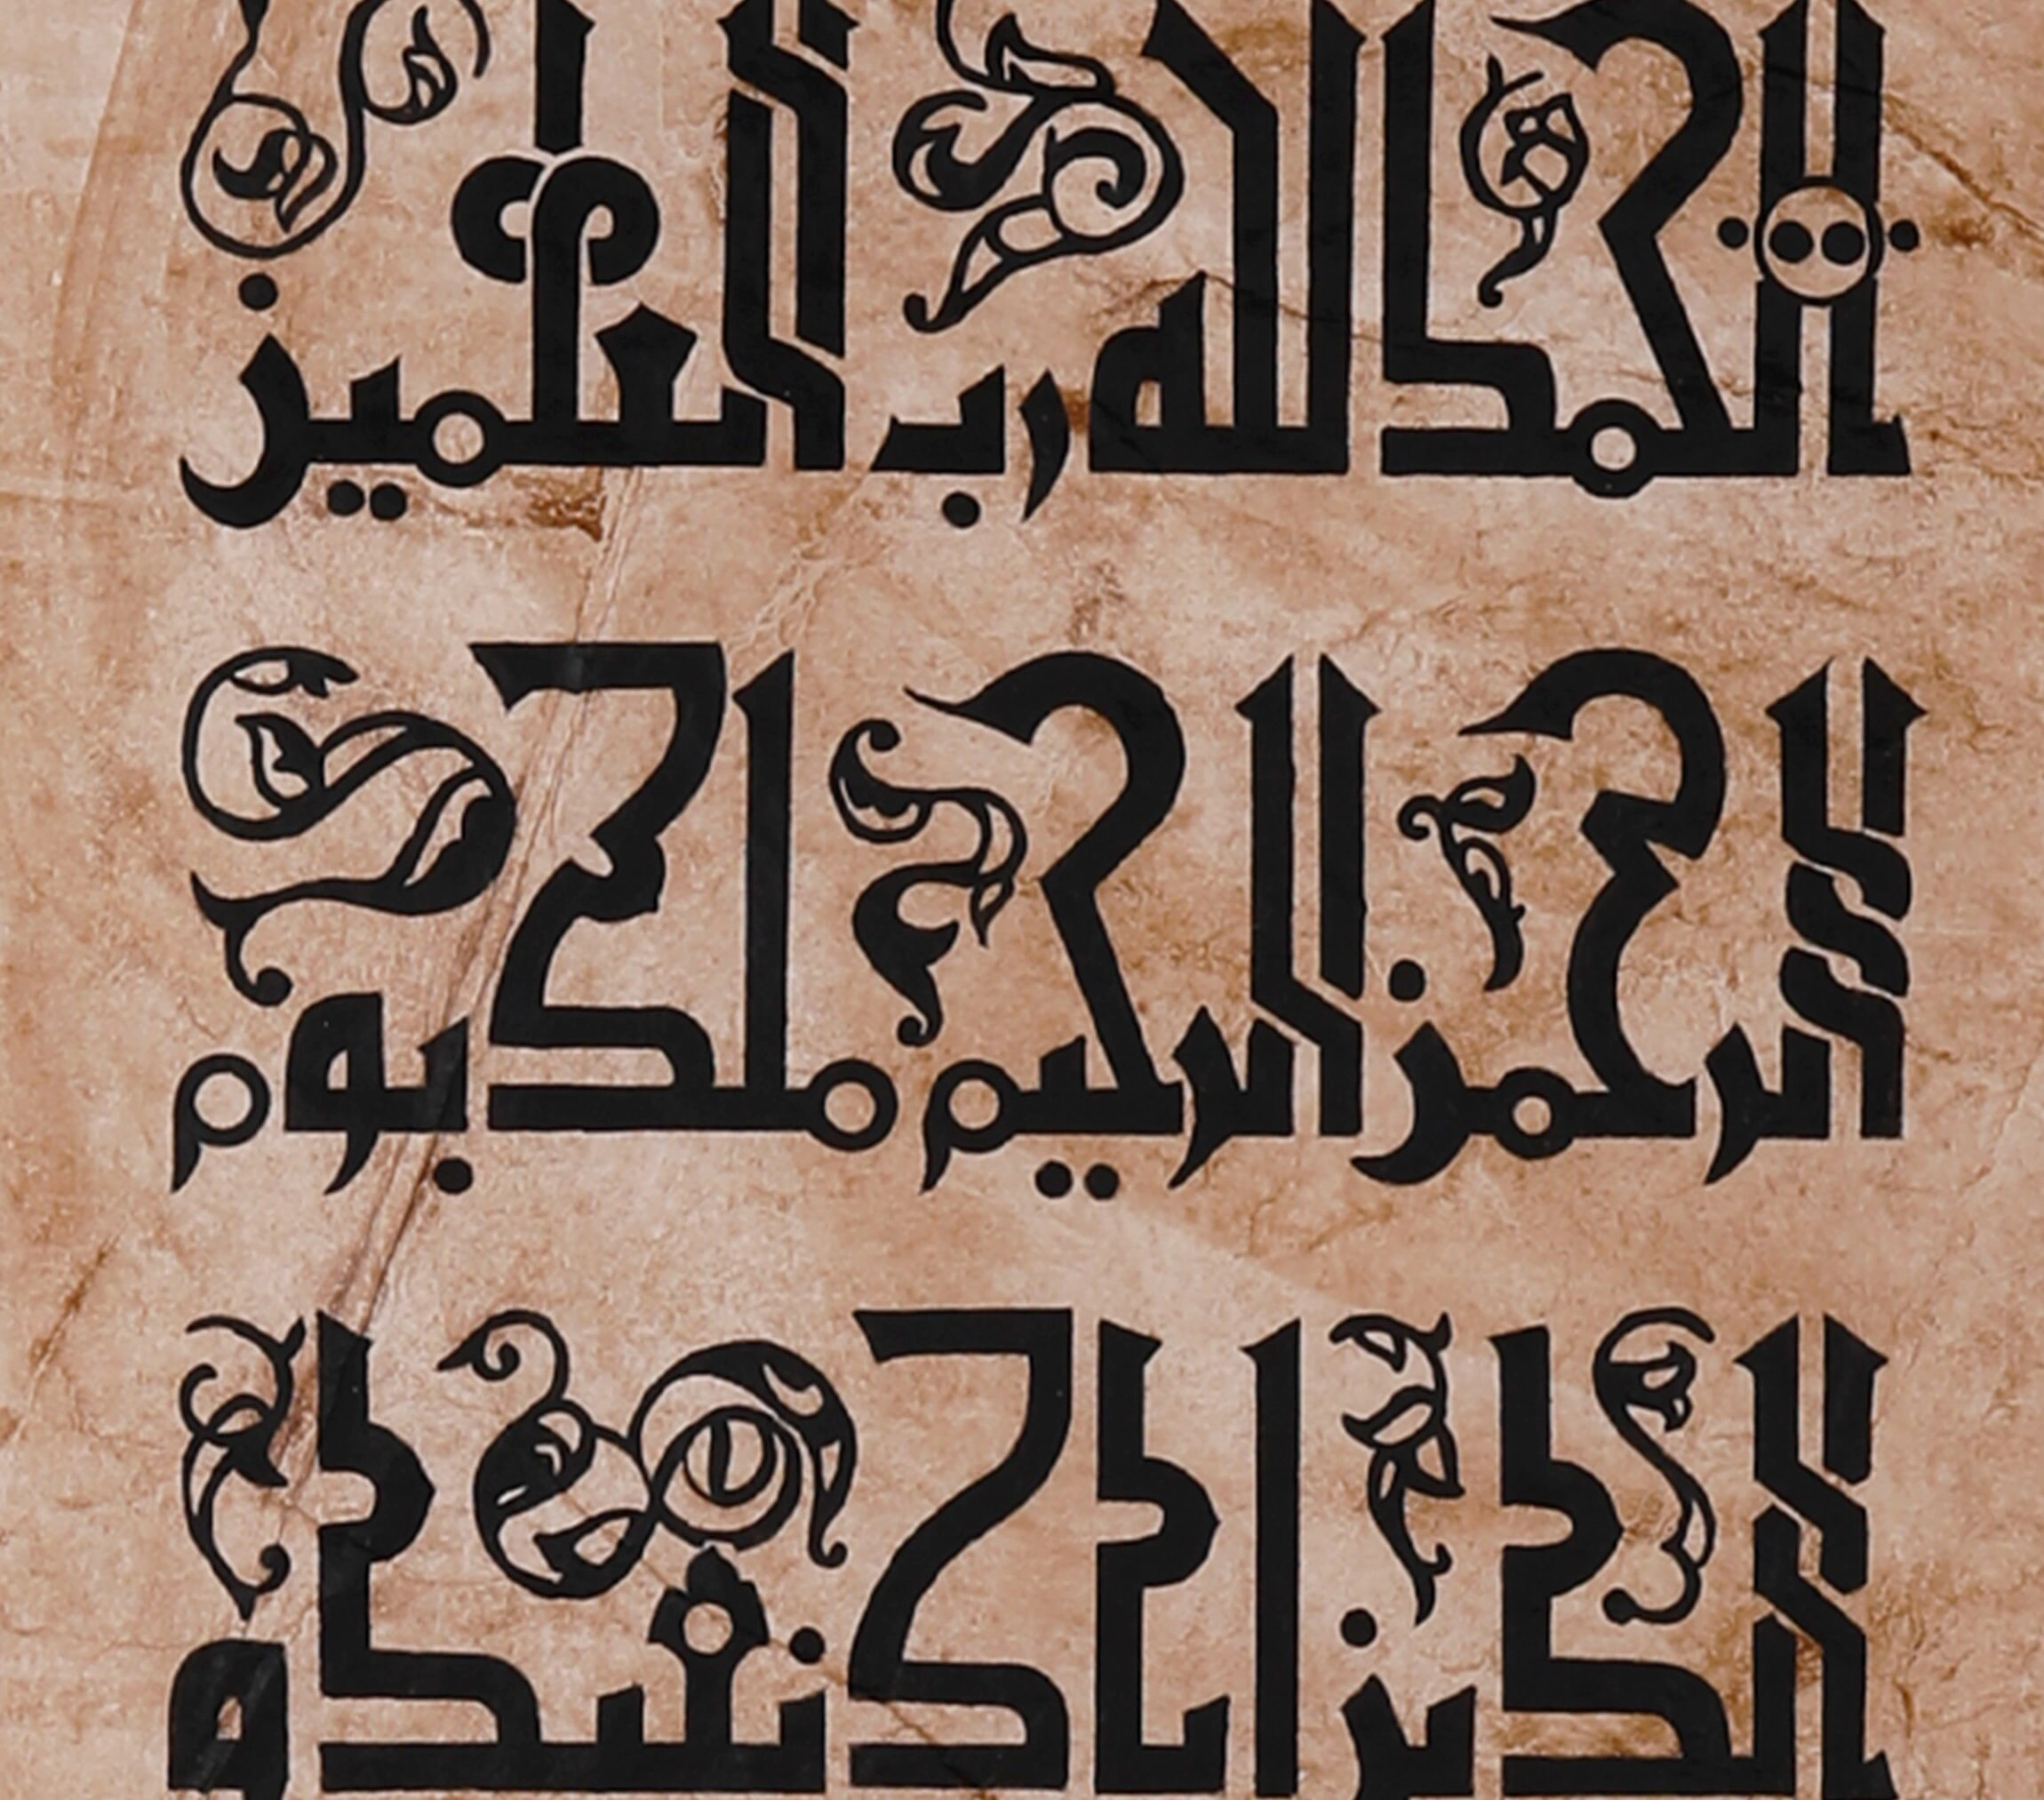 الحمد لله رب العلمين
الرحمن الرحيم ملك يوم
الدين اياك نعبد و